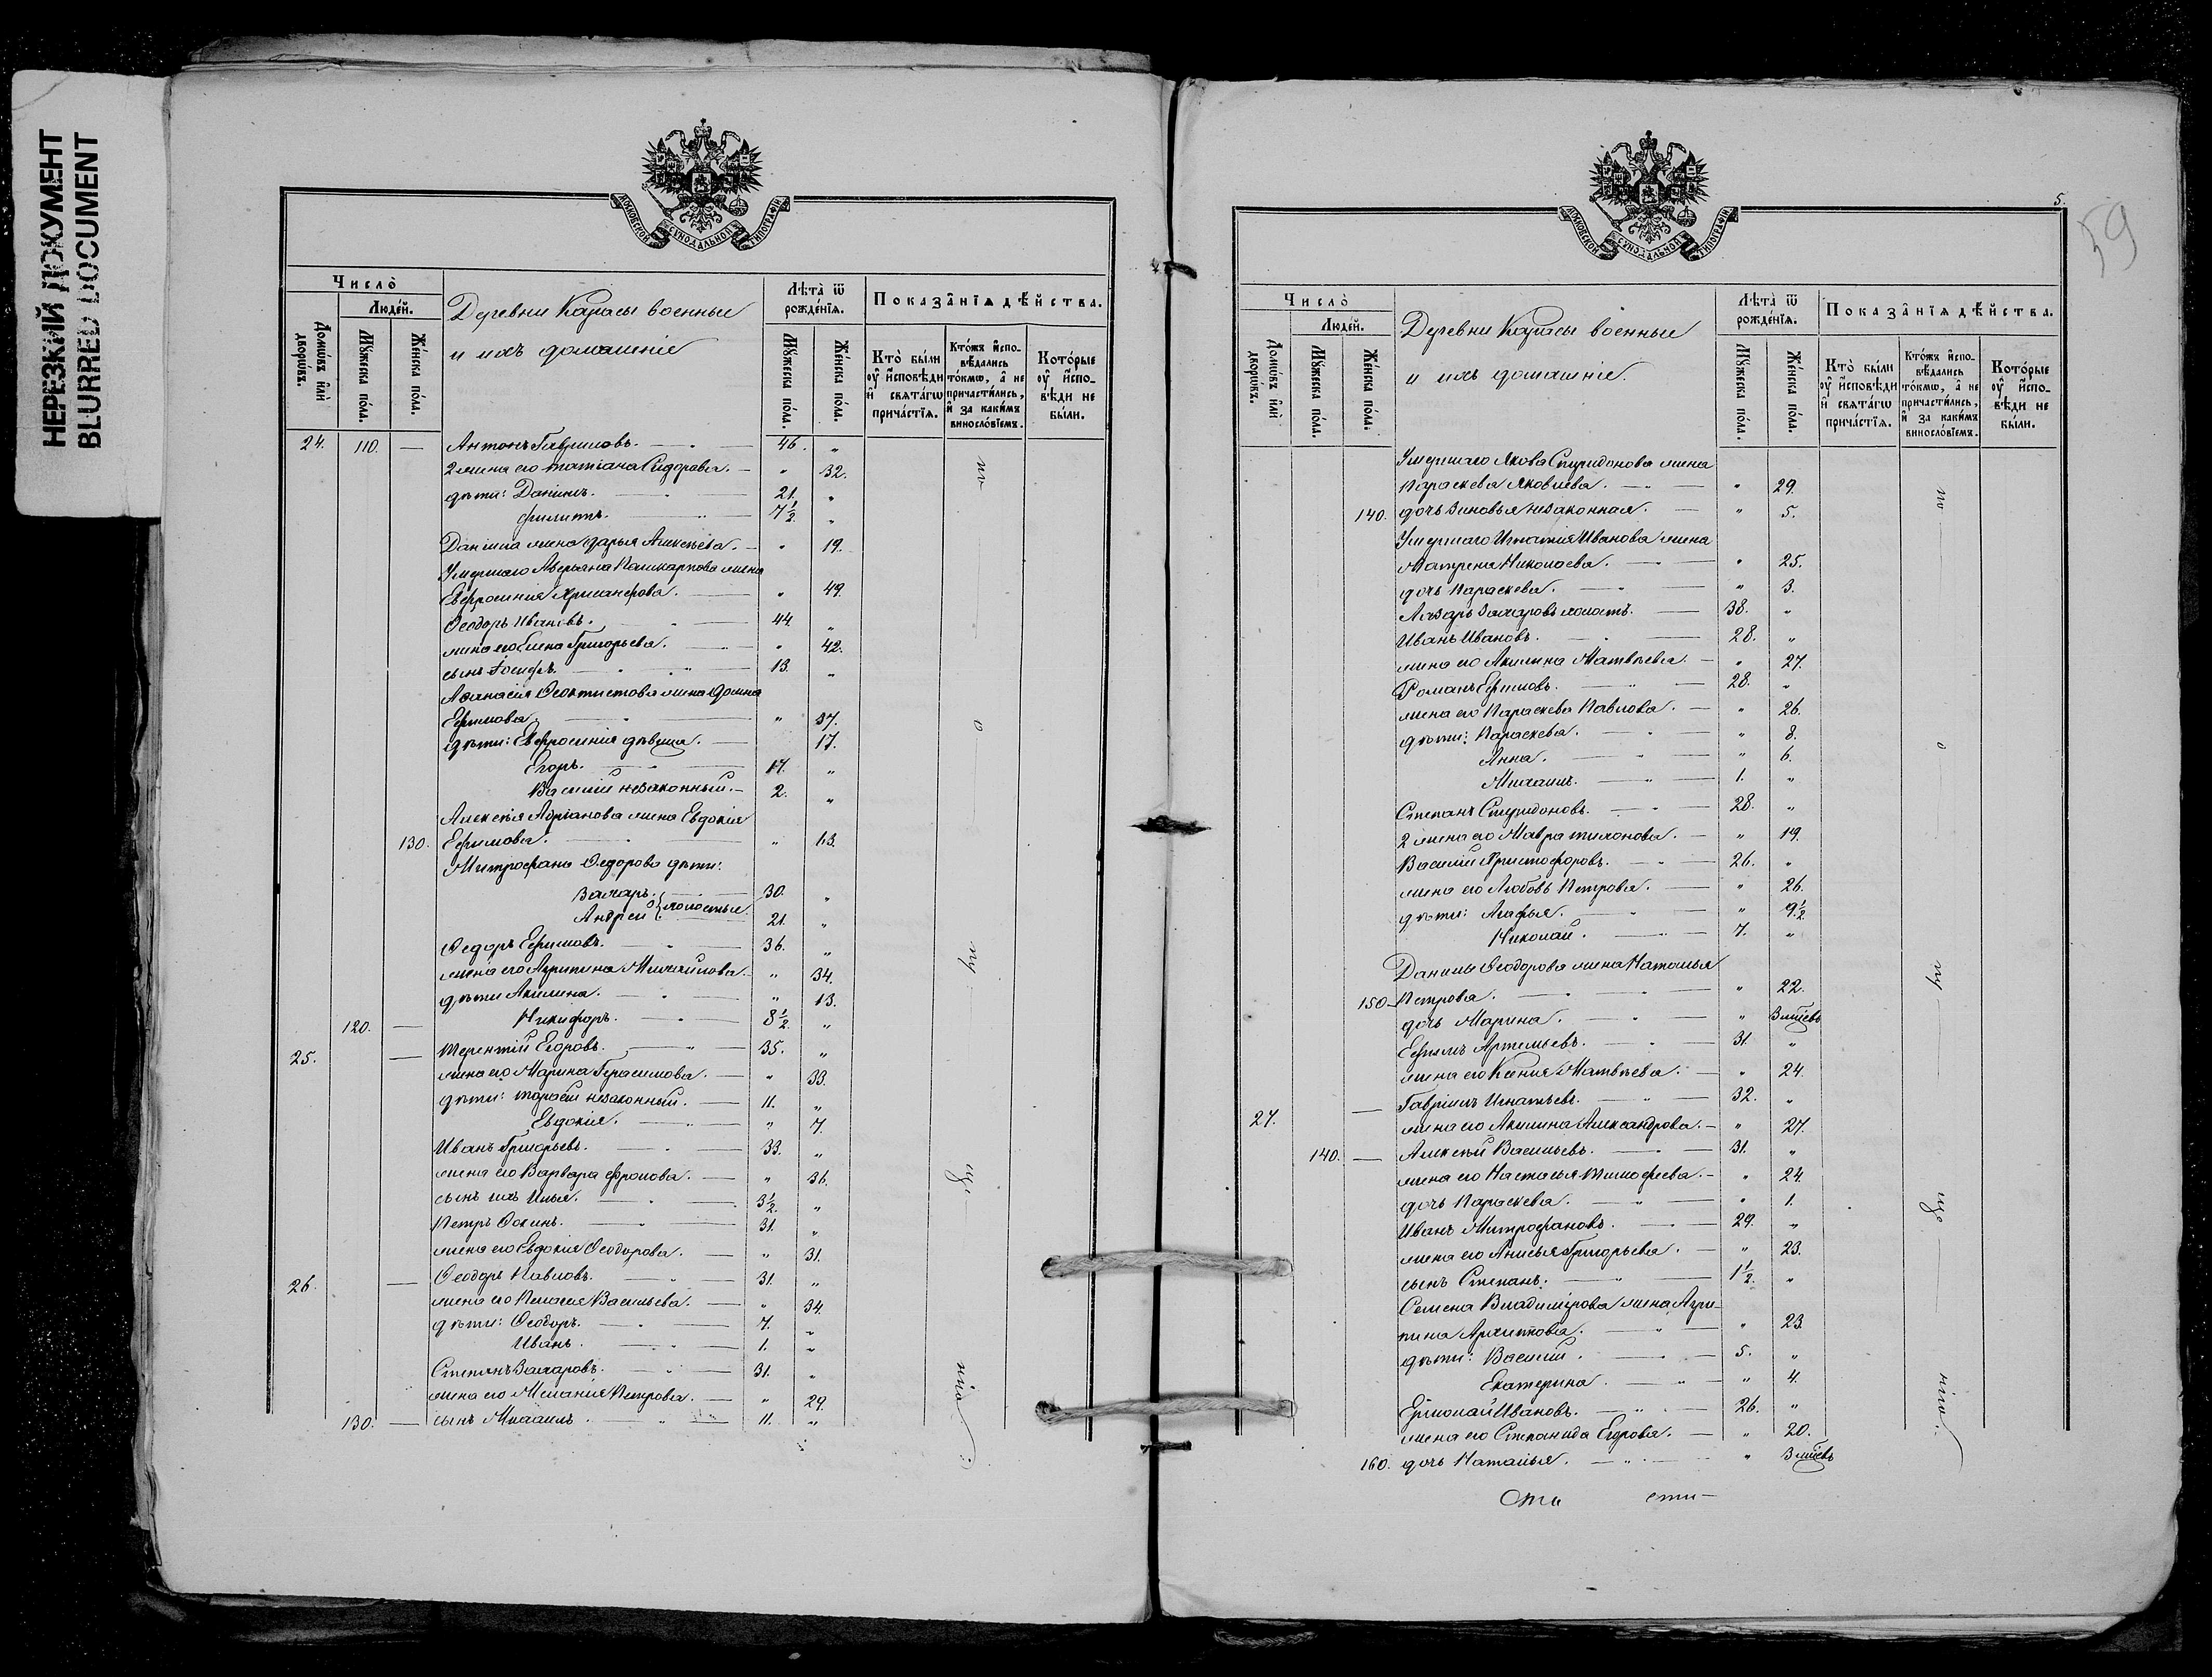 НЕРЕЗКИЙ ДОКУМЕНТ
BLURRED DOCUMENT
МОСКОВСКОЙ СѴНОДАЛЬНОЙ ТИПОГРАФІИ
Число̀
Люде́й.
Домѡ́въ и҆лѝ дворѡ́въ.
Мꙋ́жеска по́ла.
Же́нска по́ла.
Деревни Карасы военные
и ихъ домашніе
Лѣта̀ ѿ рожде́нїѧ.
Мꙋ́жеска по́ла.
Же́нска по́ла.
Показа̑нїѧ дѣ́йства.
Кто̀ бы́ли оу҆ и҆сповѣ́ди и҆ свѧта́гѡ прича́стїѧ.
Кто́жъ и҆сповѣ́дались то́кмѡ, а҆ не причасти́лись, и҆ за каки́мъ виносло́вїемъ.
Кото́рые оу҆ и҆спо-вѣ́ди не бы́ли.
24. 110. — Антонъ Гавриловъ. — 46. „
2 жена его Татіана Сидорова. — „ 32.
дѣти: Даніилъ. — 21. „
Филиппъ. — 7½. „
Даніила жена Дарья Алексѣева. — „ 19.
Умершаго Аверьяна Поликарпова жена
Евфросинія Хрисанфова. — „ 49.
Ѳеодоръ Ивановъ. — 44. „
жена его Елена Григорьева. — „ 42.
сынъ Іосифъ. — 13. „
Аѳанасія Ѳеоктистова жена Домна
Ефимова. — „ 37.
дѣти: Евфросинія дѣвица. — 17.
Егоръ. — 17. „
Василій незаконный. — 2. „
Алексѣя Адріанова жена Евдокія
130. Ефимова. — „ 43.
Митрофана Ѳедорова дѣти:
Захаръ. } холостые 30. „
Андрей 21. „
Ѳедоръ Ефимовъ. — 36. „
жена его Агрипина Михайлова. — „ 34.
дѣти Акилина. — „ 13.
120. — Никифоръ. — 8½. „
25. — Терентій Егоровъ. — 35. „
жена его Марина Герасимова. — „ 33.
дѣти: Тарасій незаконный. — 11. „
Евдокія. — „ 7.
Иванъ Григорьевъ. — 33. „
жена его Варвара Фролова. — „ 36.
сынъ ихъ Илья. — 3½. „
Петръ Ѳокинъ. — 31. „
жена его Евдокія Ѳеодорова. — „ 31.
26. — Ѳеодоръ Павловъ. — 31. „
жена его Пелагея Васильева. — „ 34.
дѣти: Ѳеодоръ. — 7. „
Иванъ. — 1. „
Степанъ Захаровъ. — 31. „
жена его Меланія Петрова. — „ 29.
130. — сынъ Михаилъ. — 11. „
по
о
пу
ще
нію.
МОСКОВСКОЙ СѴНОДАЛЬНОЙ ТИПОГРАФІИ
5.
59
Число̀
Люде́й.
Домѡ́въ и҆лѝ дворѡ́въ.
Мꙋ́жеска по́ла.
Же́нска по́ла.
Деревни Карасы военные
и ихъ домашніе.
Лѣта̀ ѿ рожде́нїѧ.
Мꙋ́жеска по́ла.
Же́нска по́ла.
Показа̑нїѧ дѣ́йства.
Кто̀ бы́ли оу҆ и҆сповѣ́ди и҆ свѧта́гѡ прича́стїѧ.
Кто́жъ и҆сповѣ́дались то́кмѡ, а҆ не причасти́лись, и҆ за каки́мъ виносло́вїемъ.
Кото́рые оу҆ и҆спо-вѣ́ди не бы́ли.
Умершаго Якова Спиридонова жена
Параскева Яковлева. — „ 29.
140. дочь Зиновья незаконная. — „ 5.
Умершаго Игнатія Иванова жена
Матрена Николаева. — „ 25.
дочь Параскева. — „ 3.
Лазарь Захаровъ холостъ. — 38. „
Иванъ Ивановъ. — 28. „
жена его Акилина Матвѣева. — „ 27.
Романъ Ефимовъ. — 28. „
жена его Параскева Павлова. — „ 26.
дѣти: Параскева. — „ 8.
Анна. — „ 6.
Михаилъ. — 1. „
Степанъ Спиридоновъ. — 28. „
2 жена его Мавра Тихонова. — „ 19.
Василій Христофоровъ. — 26. „
жена его Любовь Петрова. — „ 26.
дѣти: Агафья. — „ 9½.
Николай. — 7. „
Даниила Ѳеодорова жена Наталья
150 — Петрова. — „ 22.
дочь Марина. — „ 3 мѣсѣвъ
Ефимъ Артемьевъ. — 31. „
жена его Ксенія Матвѣева. — „ 24.
27. — Гавріилъ Игнатьевъ. — 32. „
жена его Акилина Александрова. — „ 27.
140. — Алексѣй Васильевъ. — 31. „
жена его Настасья Тимофеева. — „ 24.
дочь Параскева. — „ 1.
Иванъ Митрофановъ. — 29. „
жена его Анисья Григорьева. — „ 23.
сынъ Степанъ. — 1½. „
Семена Владимірова жена Агри-
пина Архипова. — „ 23.
дѣти: Василій. — 5. „
Екатерина. — „ 4.
Ермолай Ивановъ. — 26. „
жена его Степанида Егорова. — „ 20.
160. дочь Наталья. — „ 3 мѣсѣвъ
по
о
пу
ще
нію.